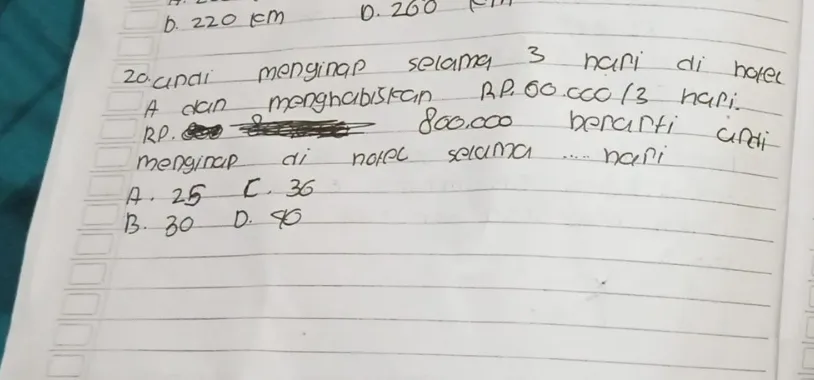 D. 220 km D. 260
20. andi menginap selama 3 hari di hotel
A dan menghabiskan RP. 60.000 / 3 hari.
RP. 800.000 berarti andi
menginap di hotel selama .... hari
A. 25 C. 36
B. 30 D. 40